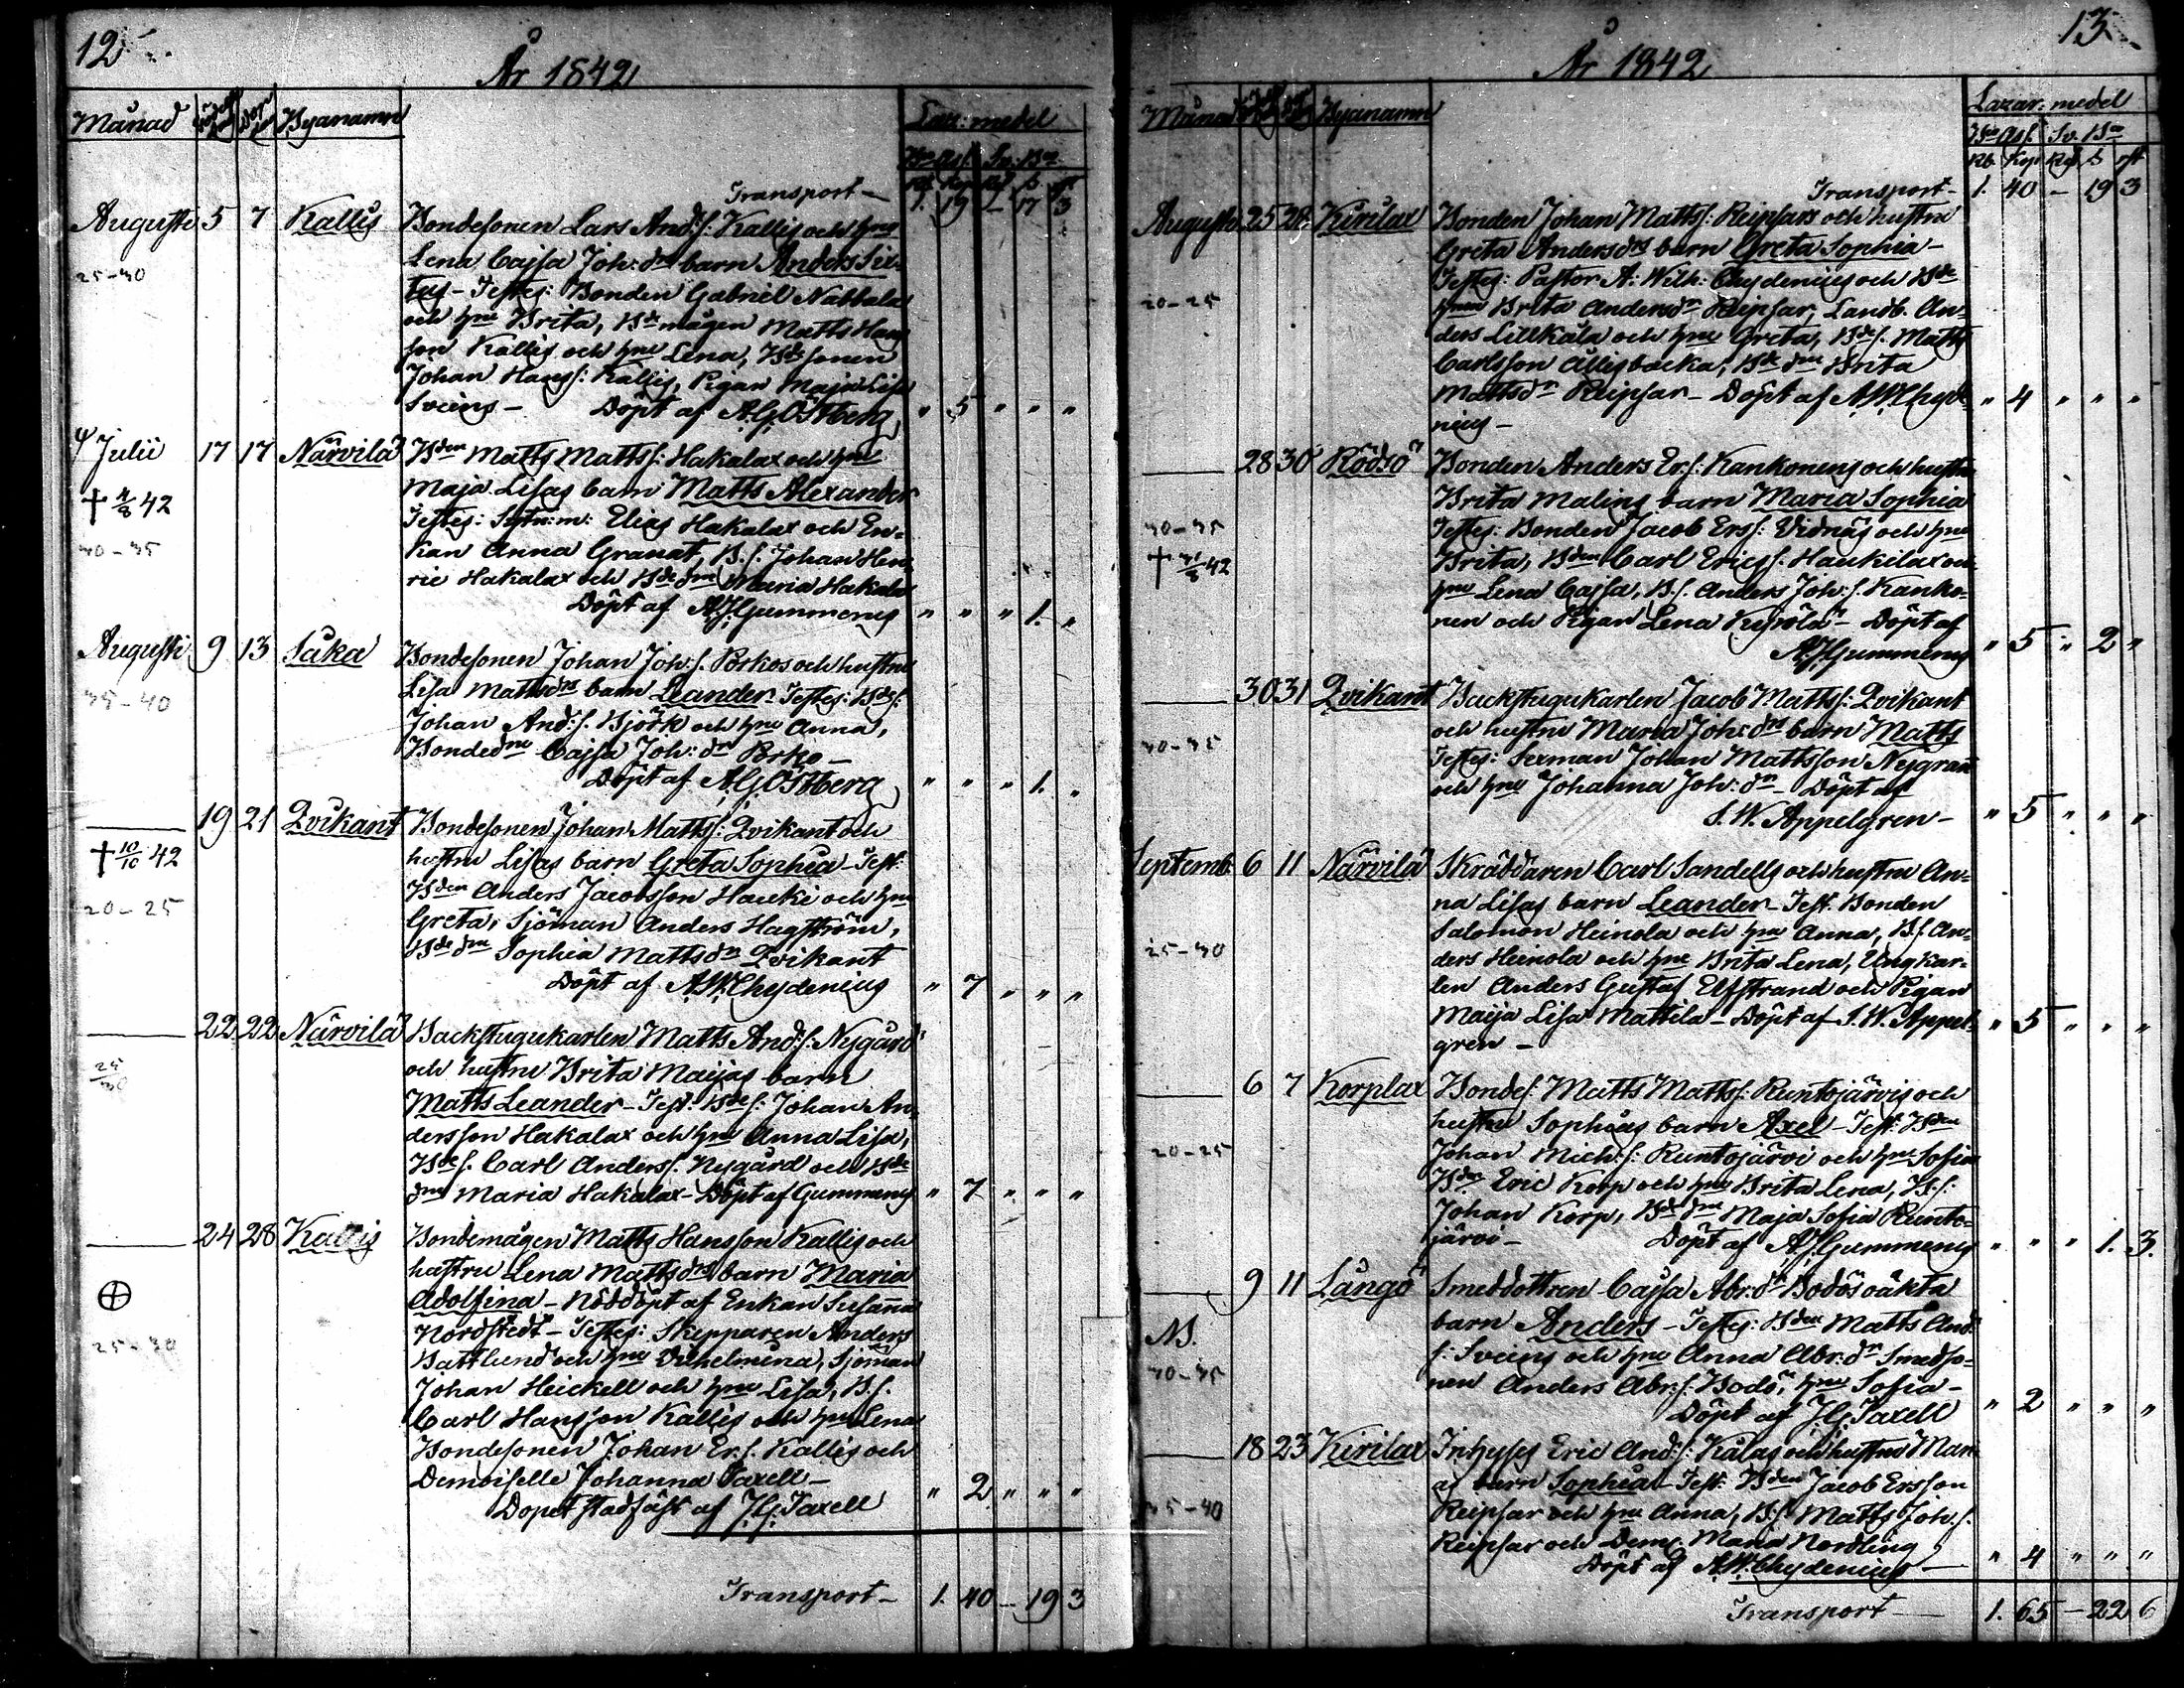 12
År 1842
Månad Födelse dag Dop dag Byanamn Laz: medel
Bco Ass. Sv. Bco
Transport — 1. 19 – 17 3
Augusti 5 7 Kallis Bondesonen Lars And:s: Kallis och hust
25-30 Lena Cajsa Joh: drs barn Anders Six-
tus – Testes: Bonden Gabriel Nabbala
och hru Brita, Bdemågen Matts Hans
son Kallis och hru Lena, Bdesonen
Johan Hans s: Kallis, Pigan Maja Lisa
Sveins – Döpt af A.G. Östberg " 5 " " "
Julii 17 17 Närvilä Bden Matts Matts s: Hakalax och hru
† 4/8 42 Maja Lisas barn Matts Alexander
30-35 Testes: Elias Hakalax och En-
kan Anna Granat, B.s. Johan Hen-
ric Hakalax och Bdedrn Maria Hakalax
Döpt af A.J. Gummerus " " " 1. "
Augusti 9 13 Såka Bondesonen Johan Joh: s. Porkos och hustru
35-40 Lisa Mattsdrs barn Leander. Testes: Bdes:
Johan And: s. Björk och hru Anna,
Bondedrn Cajsa Joh: dr Porko –
Döpt af A.G. Östberg " " " 1. "
— 19 21 Qvikant Bondesonen Johan Matts s: Qvikant och
† 10/10 42 hustru Lisas barn Greta Sophia – Test:
20-25 Bden Anders Jacobsson Hauki och hru
Greta, Sjöman Anders Hagström,
Bdedrn Sophia Mattsdr Qvikant
Döpt af A.W. Chydenius " 7 " " "
— 22 22 Närvilä Backstugukarlen Matts And: s. Nygård
25/30 och hustru Brita Maijas barn
Matts Leander – Test: Bdes: Johan An-
dersson Hakalax och hru Anna Lisa,
Bdes. Carl Anders s. Nygård och Bde
drn Maria Hakalax – Döpt af Gummerus " 7 " " "
— 24 28 Kallis Bondemågen Matts Hansson Kallis och
hustru Lena Mattsdrs barn Maria
Adolfina – Nöddöpt af Enkan Susanna
25-30 Nordstedt – Testes: Skepparen Anders
Battlund och hru Vilhelmina, Sjöman
Johan Heickell och hru Lisa, B.s.
Carl Hansson Kallis och hru Lena
Bondesonen Johan Er. s. Kallis och
Demoiselle Johanna Taxell –
Dopet stadfäst af J.G. Taxell " 2 " " "
Transport – 1. 40 – 19 3
13
År 1842
Månad Byanamn Lazar: medel
Bco Ass. Sv. Bco
Rb. Kop Rd s rst
Transport – 1. 40 – 19 3
Augusti 25 28 Kirilax Bonden Johan Matts s: Reipsars och hustru
Greta Andersdrs barn Greta Sophia –
20-25 Testes: Pastor A: Wilh: Chydenius och Bde
hrun Brita Andersdr Reipsar, Landb. An-
ders Lillkåla och hru Greta, Bdes. Matts
Carlsson Allisbacka, Bdedrn Brita
Mattsdr Reipsar – Döpt af A.W. Chyde- " 4 " " "
nius –
— 28 30 Rödsö Bonden Anders Er. s. Kankonens och hustru
Brita Malins barn Maria Sophia
30-35 Testes: Bonden Jacob Ers s: Vidnäs och hru
† 31/8 42 Brita, Bden Carl Erics s. Haukilax och
hru Lena Cajsa, B.s. Anders Joh: s. Kanko-
nen och Pigan Lena – Döpt af
A.J. Gummerus " 5 " 2 "
— 30 31 Qvikant Backstugukarlen Jacob Matts s: Qvikant
30-35 och hustru Maria Joh: drs barn Matts
Testes: Sexman Johan Mattsson Nygran
och hru Johanna Joh: dr – Döpt af
S.W. Appelgren – " 5 " " "
Septemb 6 11 Närvilä Skräddaren Carl Sandells och hustru An-
na Lisas barn Leander – Test. Bonden
Salomon Heinola och hru Anna, B.s. An-
25-30 ders Heinola och hru Brita Lena, Ungkar-
len Anders Gustaf Elfstrand och Pigan
Maija Lisa Mattila – Döpt af S.W. Appel- " 5 " " "
gren –
— 6 7 Korplax Bondes. Matts Matts s: Runtojärvis och
hustru Sophias barn Axel – Test. Bden
20-25 Johan Mich: s: Runtojärvi och hru Sofia
Bden Eric Korp och hru Brita Lena, B.s:
Johan Korp, Bdedrn Maja Sofia Runto-
järvi – Döpt af A.J. Gummerus " " " 1. 3.
— 9 11 Långö Smeddottren Cajsa Abr: dr Bodös oäkta
NB. barn Anders – Testes: Bden Matts And:
30-35 s: Sveins och hru Anna Abr: dr Smedso-
nen Anders Abr: s: Bodö, hru Sofia –
Döpt af J.G. Taxell " 2 " " "
— 18 23 Kirilax Inhyses Eric And: s: Kålas och hustru Mari-
as barn Sophia – Test: Bden Jacob Ersson
35-40 Reipsar och hru Anna, B.s. Matts Joh. s.
Reipsar och Dems. Maria Nordling
Döpt af A.W. Chydenius — " 4 " " "
Transport — 1. 65 – 22 6